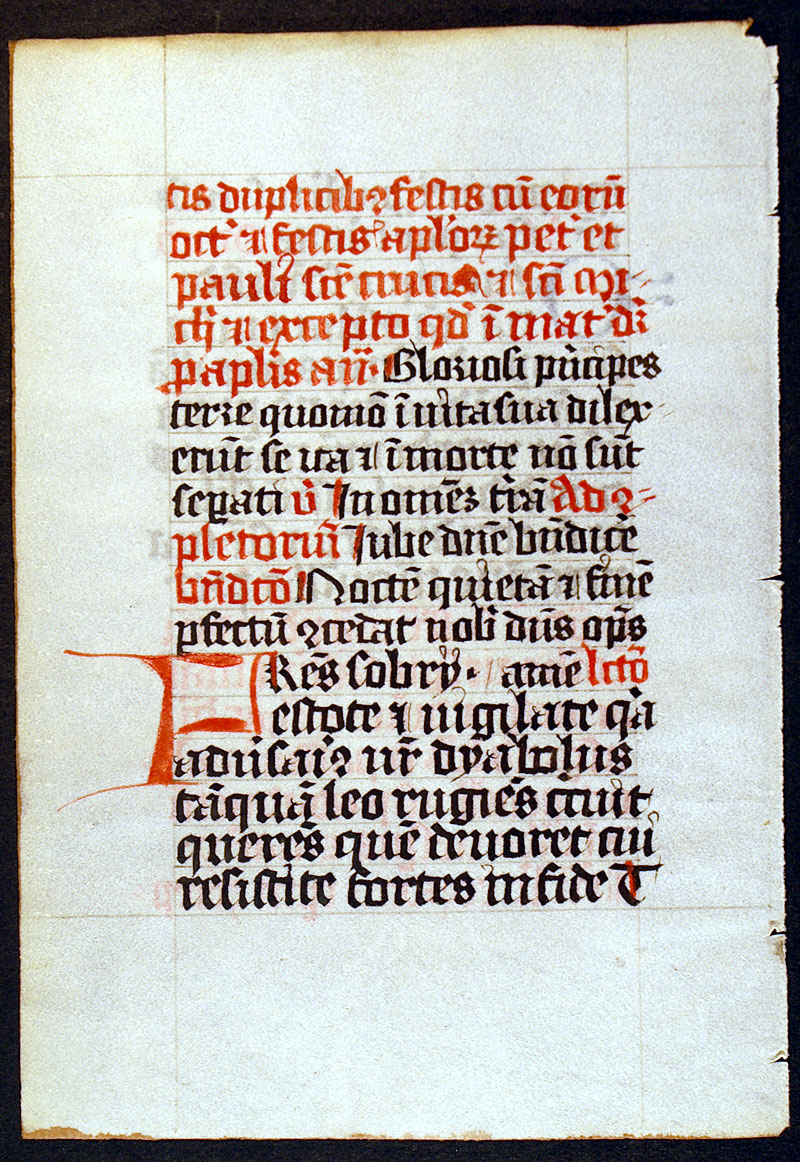 tis duplicibꝰ festis cū eorū
octꝰ ⁊ festis aplꝝ petꝰ et
pauli scē crucis ⁊ scī Mi-
chꝭ ⁊ excepto qd̄ ī matꝰ dr̄
ꝑ aplis añ Gloriosi pͥncipes
terre quomō ī vita sua dilex-
erūt se ita ⁊ ī morte nō sūt
seꝑati v̄ In omnē terrā Ad ꝯ-
pletoriū Iube dn̄e bn̄dicē
bn̄dctō Noctē quietā ⁊ finē
ꝑfectū ꝯcedat nobꝭ dn̄s opn̄s
FRēs sobrij . amē lctō
estote ⁊ vigilate qͥa
adūsariꝰ vr̄ dyabolus
tāquā leo rugiēs circuit
querēs quē devoret cui
resistite fortes in fide T